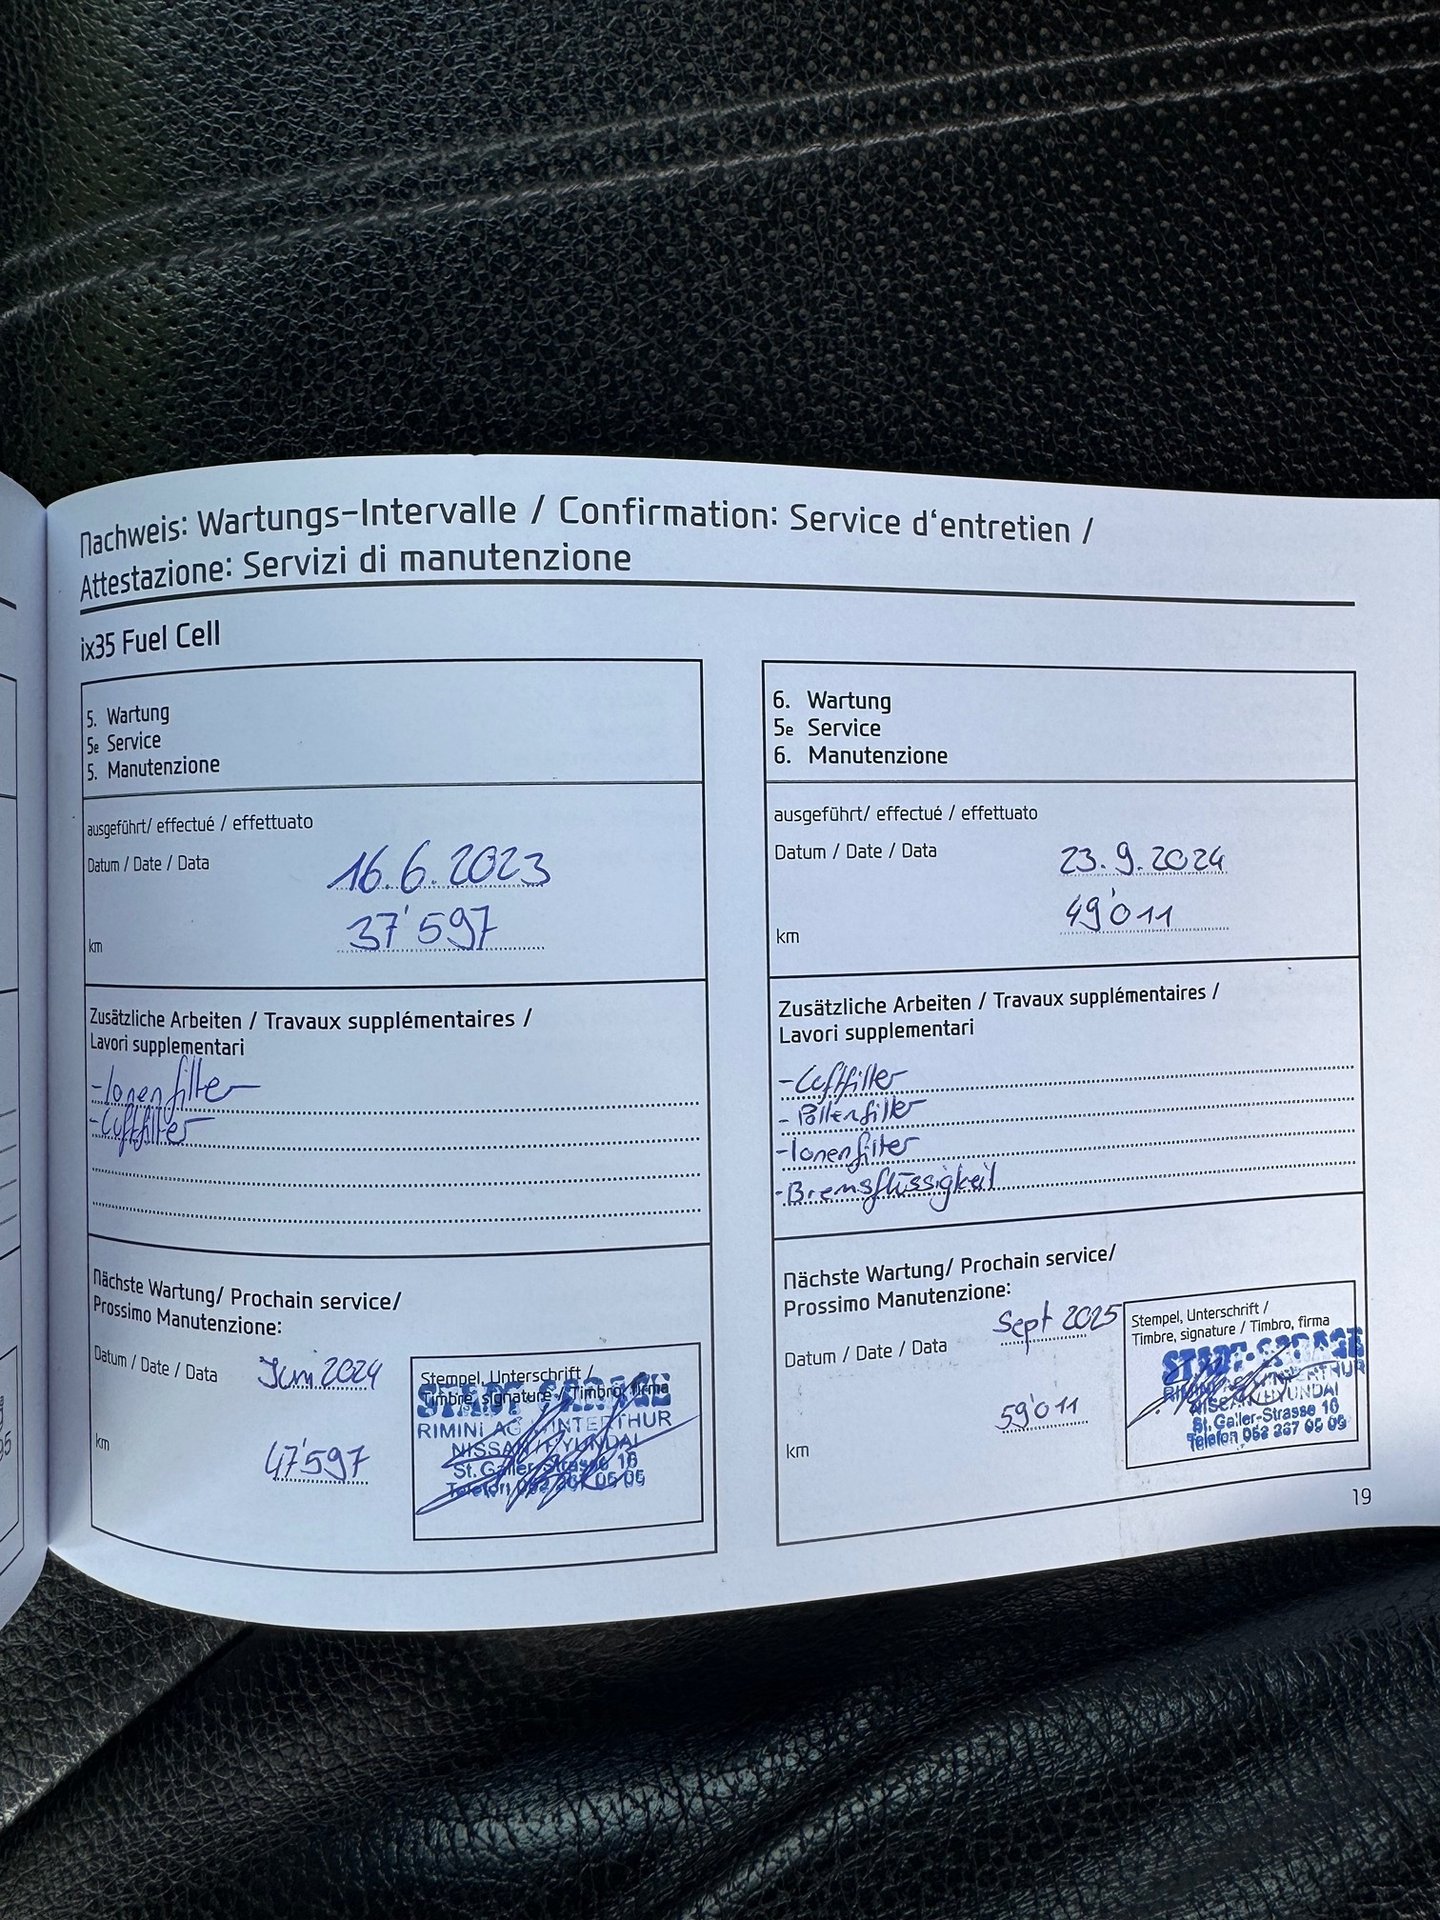 Nachweis: Wartungs-Intervalle / Confirmation: Service d'entretien /
Attestazione: Servizi di manutenzione
ix35 Fuel Cell
5. Wartung
5e Service
5. Manutenzione
ausgeführt/ effectué / effettuato
Datum / Date / Data 16.6.2023
km 37'597
Zusätzliche Arbeiten / Travaux supplémentaires /
Lavori supplementari
- Ionenfilter
- Luftfilter
Nächste Wartung/ Prochain service/
Prossimo Manutenzione:
Datum / Date / Data Juni 2024
km 47'597
Stempel, Unterschrift /
Timbre, signature / Timbro, firma
STADT-GARAGE
RIMINI AG WINTERTHUR
NISSAN/HYUNDAI
St. Galler-Strasse 16
Telefon 052 267 05 05
6. Wartung
5e Service
6. Manutenzione
ausgeführt/ effectué / effettuato
Datum / Date / Data 23.9.2024
km 49'011
Zusätzliche Arbeiten / Travaux supplémentaires /
Lavori supplementari
- Luftfilter
- Pollenfilter
- Ionenfilter
- Bremsflüssigkeit
Nächste Wartung/ Prochain service/
Prossimo Manutenzione:
Datum / Date / Data Sept 2025
km 59'011
Stempel, Unterschrift /
Timbre, signature / Timbro, firma
STADT-GARAGE
RIMINI AG WINTERTHUR
NISSAN/HYUNDAI
St. Galler-Strasse 16
Telefon 052 267 05 05
19